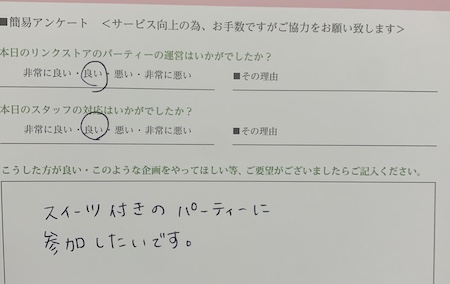 ■簡易アンケート ＜サービス向上の為、お手数ですがご協力をお願い致します＞
本日のリンクストアのパーティーの運営はいかがでしたか？
非常に良い・良い・悪い・非常に悪い ■その理由
本日のスタッフの対応はいかがでしたか？
非常に良い・良い・悪い・非常に悪い ■その理由
こうした方が良い・このような企画をやってほしい等、ご要望がございましたらご記入ください。
スイーツ付きのパーティーに
参加したいです。